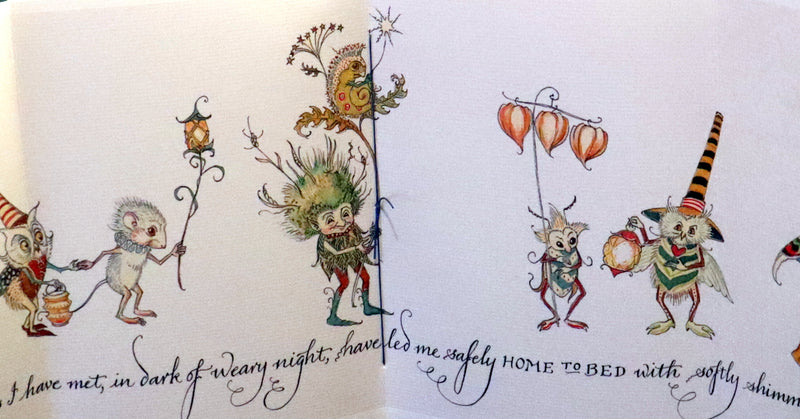 I have met, in dark of weary night, have led me safely HOME TO BED with softly shimm